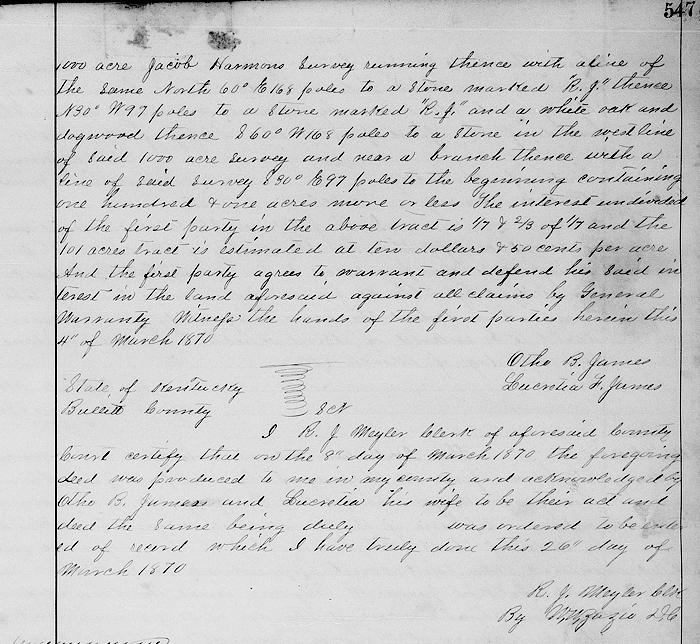 547
1000 acre Jacob Harmons Survey running thence with a line of
the same North 60° E 168 poles to a Stone marked "R.J." thence
N30° W97 poles to a Stone marked "R.J." and a white oak and
dogwood thence S60° W168 poles to a Stone in the west line
of Said 1000 acre Survey and near a branch thence with a
line of Said Survey S30° E97 poles to the beginning containing
one hundred & one acres more or less The interest undivided
of the first party in the above tract is 1/7 & 2/3 of 1/7 and the
101 acres tract is estimated at ten dollars & 50 cents per acre
And the first party agrees to warrant and defend his Said in
terest in the land aforesaid against all claims by General
Warranty Witness the hands of the first parties herein this
4" of March 1870
Otho B. James
Lucretia F. James
State of Kentucky
Bullitt County Sct
I R. J Meyler Clerk of aforesaid County
Court certify that on the 8" day of March 1870 the foregoing
deed was produced to me in my county and acknowledged by
Otho B. James and Lucretia his wife to be their act and
deed the Same being duly was ordered to be enter
ed of record which I have truly done this 26" day of
March 1870
R. J. Meyler Clk
By D.C